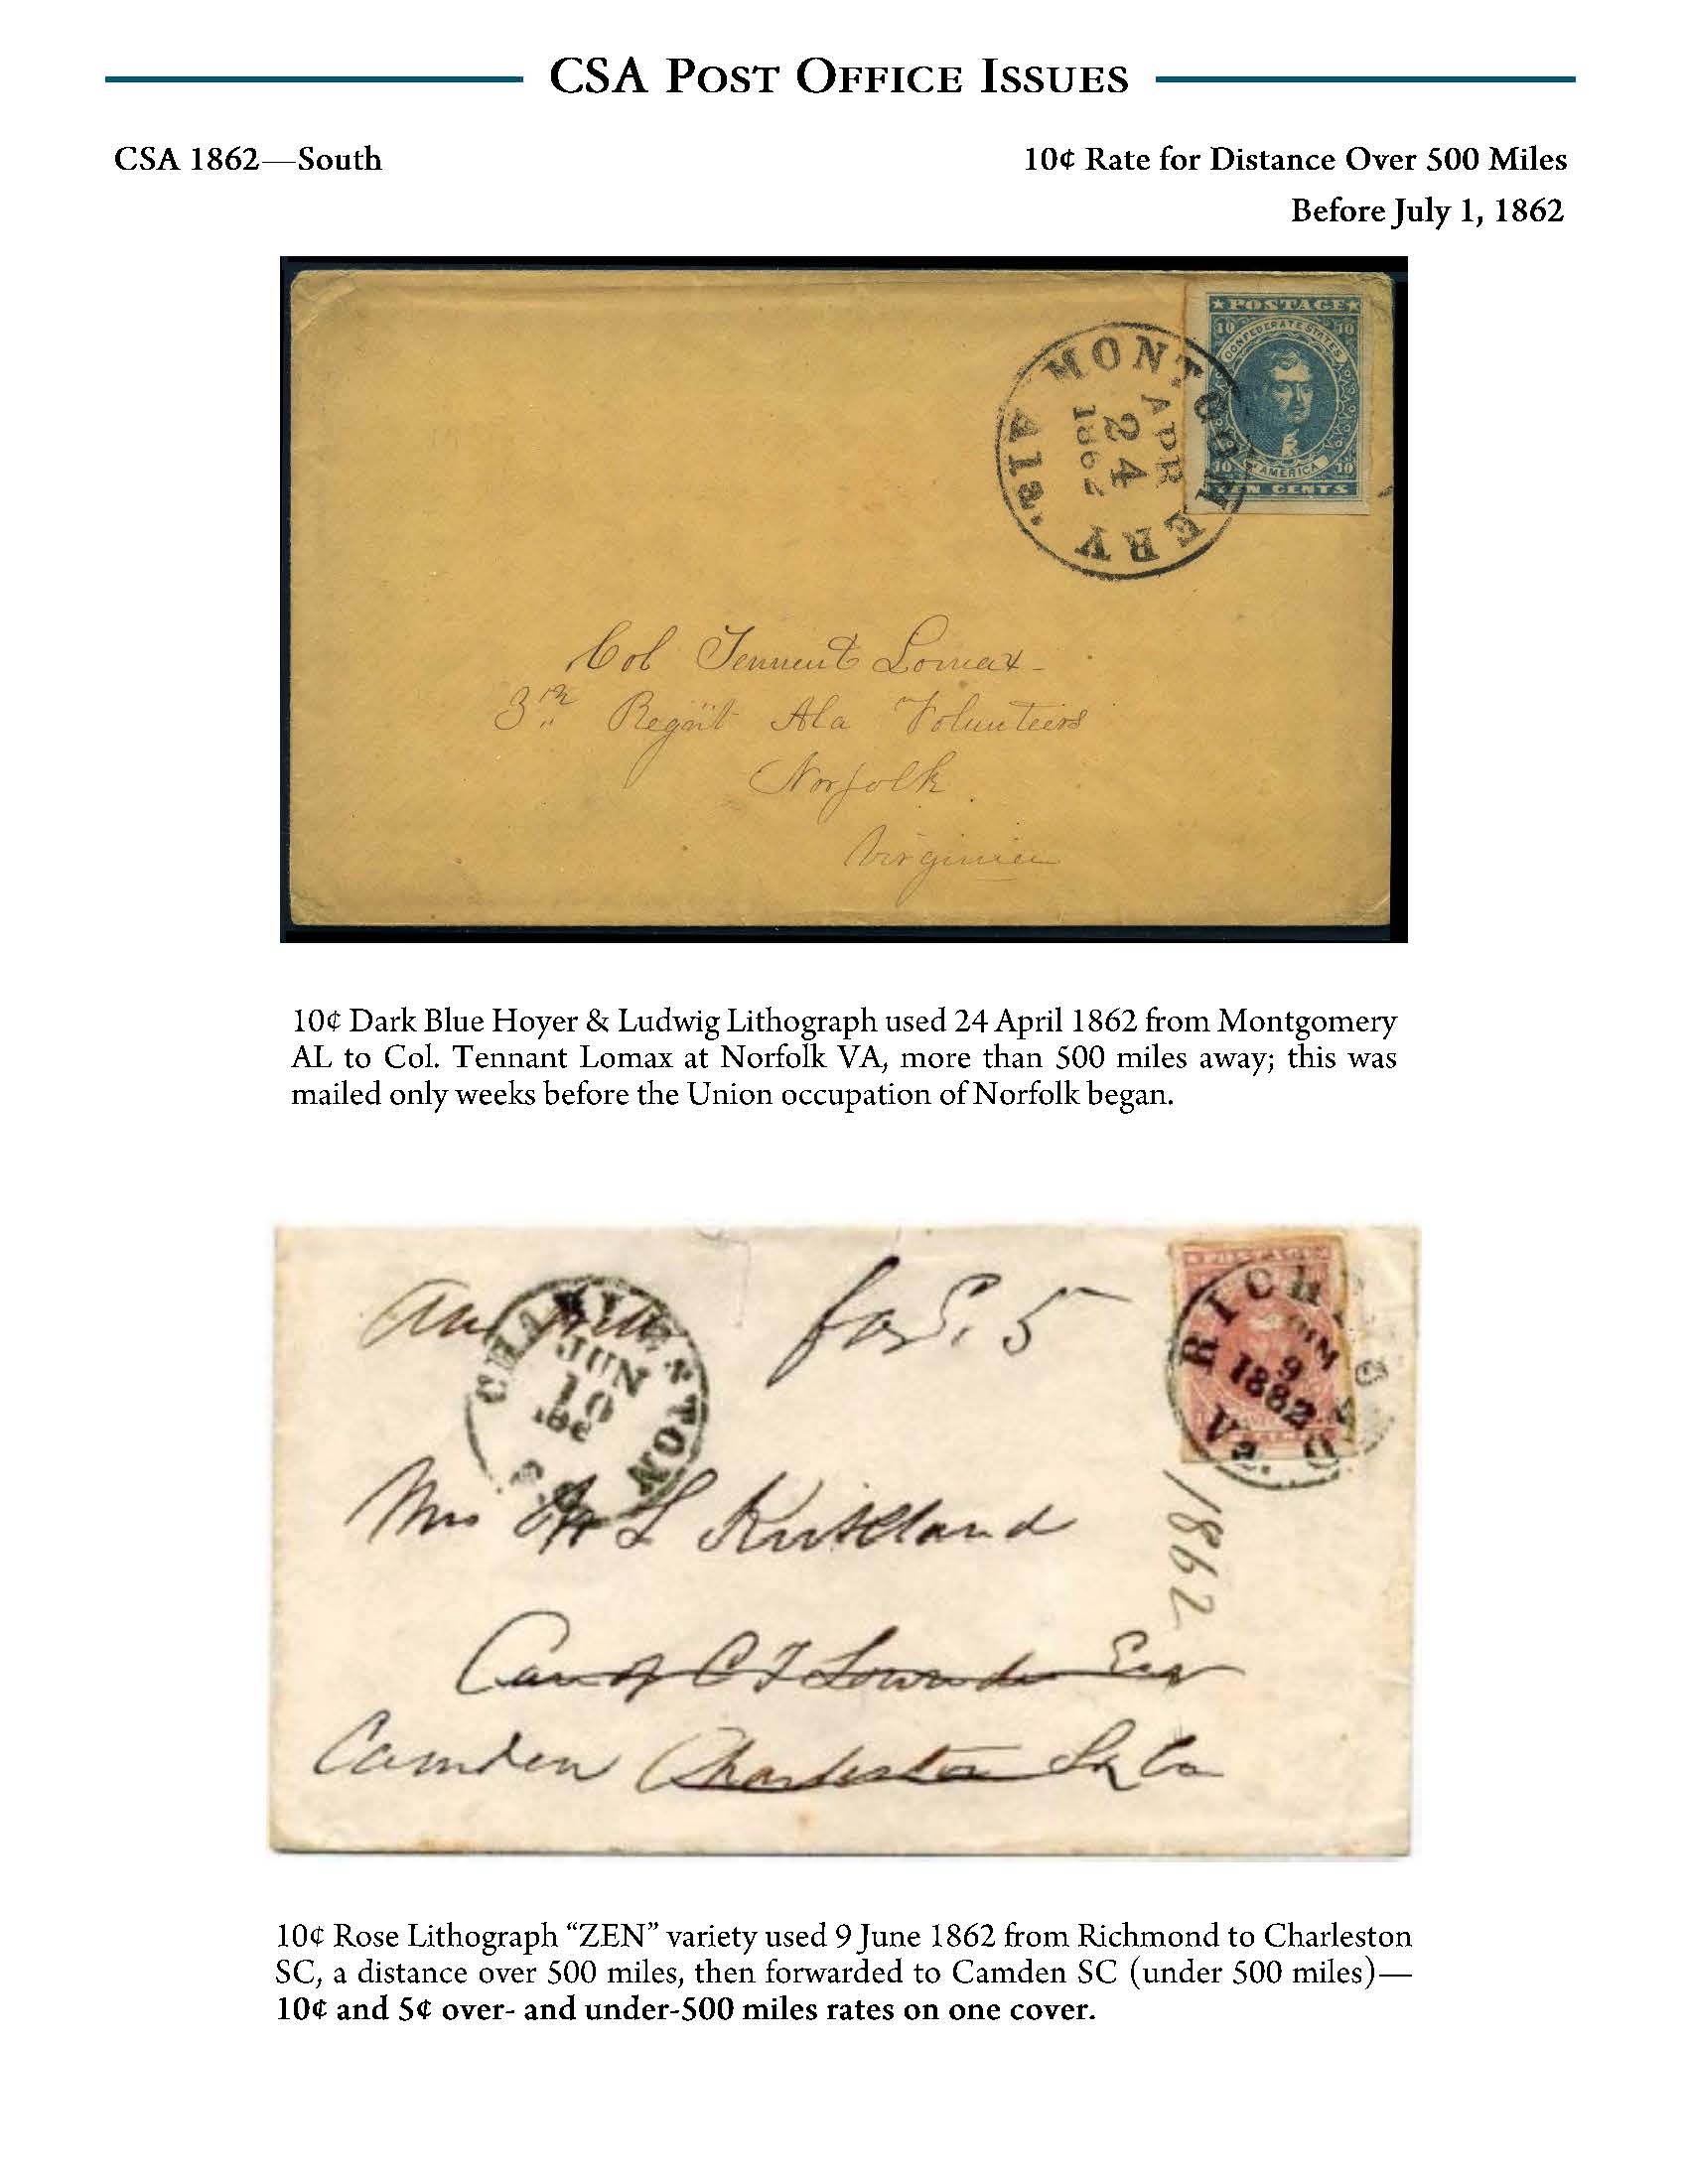 CSA Post Office Issues
CSA 1862—South
10¢ Rate for Distance Over 500 Miles
Before July 1, 1862
★ POSTAGE ★
10 CONFEDERATE STATES 10
10 AMERICA 10
TEN CENTS
MONTGOMERY
APR
24
1862
Ala.
Col Tennent Lomax
3rd Regmt Ala Volunteers
Norfolk
Virginia
10¢ Dark Blue Hoyer & Ludwig Lithograph used 24 April 1862 from Montgomery
AL to Col. Tennant Lomax at Norfolk VA, more than 500 miles away; this was
mailed only weeks before the Union occupation of Norfolk began.
5
CHARLESTON
JUN
10
186
S.C.
RICHMOND
9
1882
Va.
1862
Mrs L Kirkland
Care of C T Lowndes Esq
Camden Charleston So Ca
10¢ Rose Lithograph “ZEN” variety used 9 June 1862 from Richmond to Charleston
SC, a distance over 500 miles, then forwarded to Camden SC (under 500 miles)—
10¢ and 5¢ over- and under-500 miles rates on one cover.